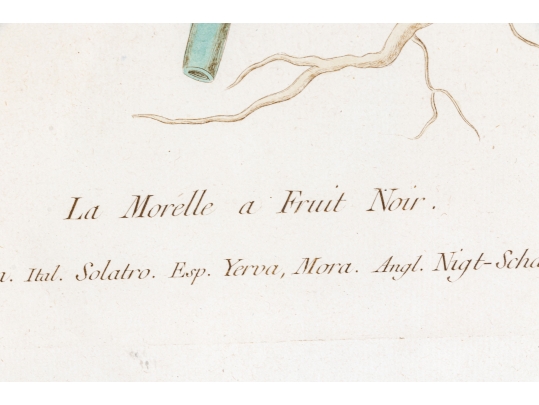 La Morélle a Fruit Noir.
a. Ital. Solatro. Esp. Yerva, Mora. Angl. Nigt-Scha